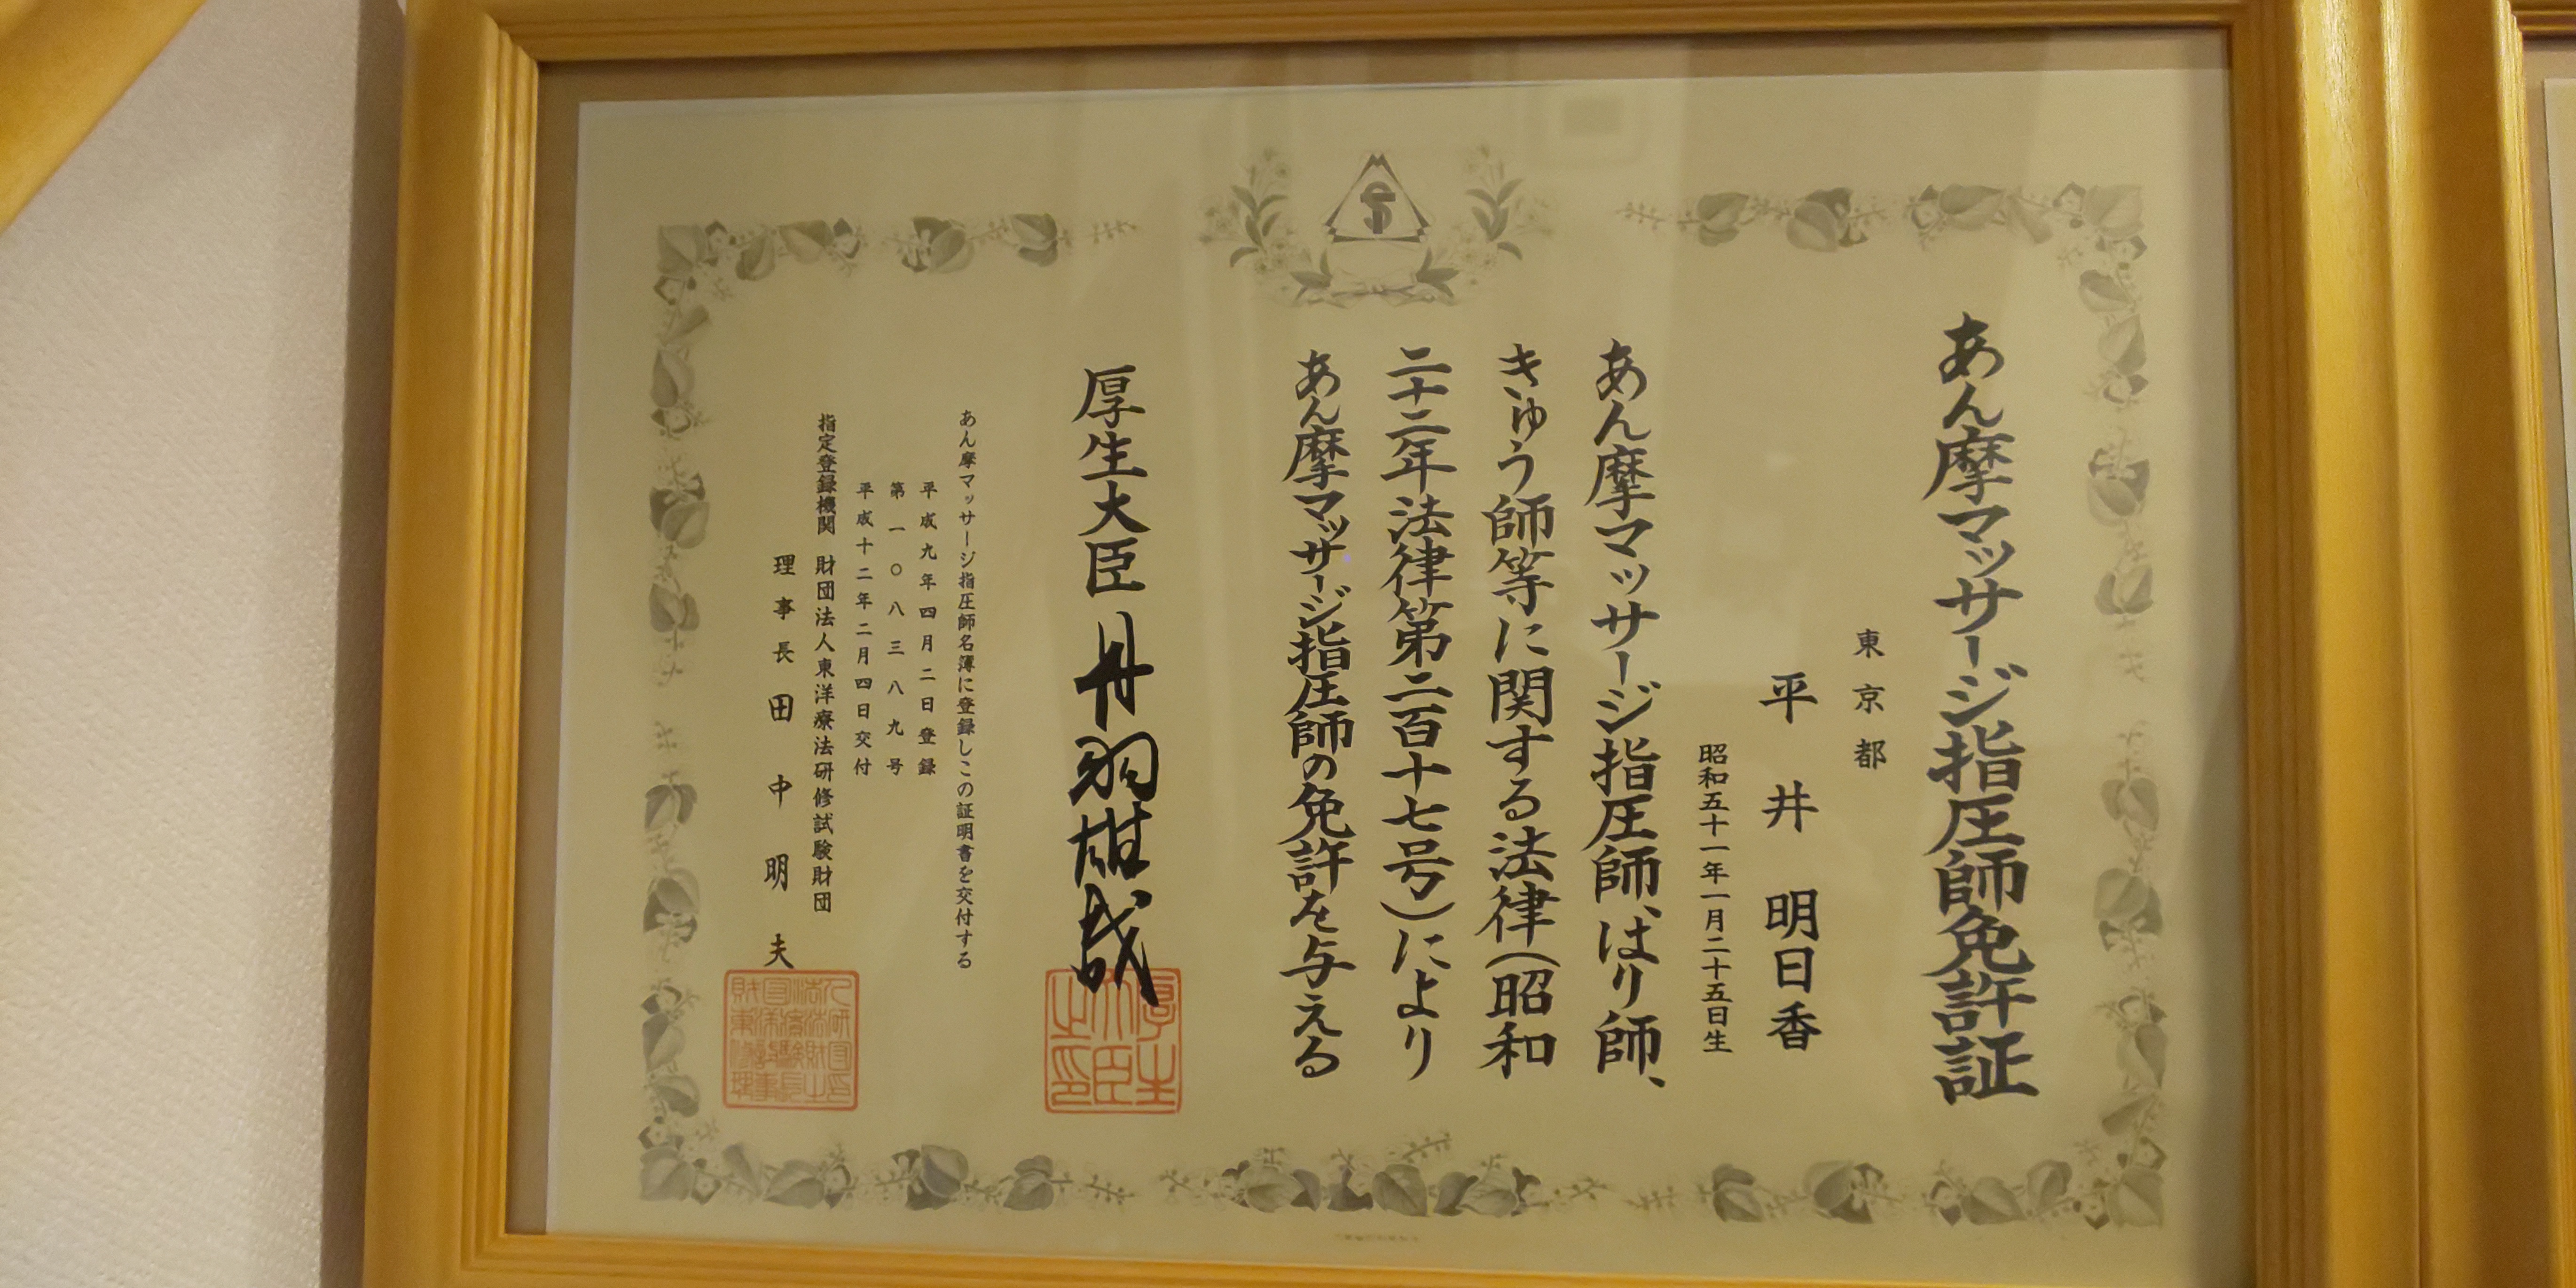 あん摩マッサージ指圧師免許証
東京都
平井明日香
昭和五十一年一月二十五日生
あん摩マッサージ指圧師、はり師、
きゅう師等に関する法律(昭和
二十二年法律第二百十七号)により
あん摩マッサージ指圧師の免許を与える
厚生大臣 丹羽雄哉
あん摩マッサージ指圧師名簿に登録しこの証明書を交付する
平成九年四月二日登録
第一〇八三八九号
平成十二年二月四日交付
指定登録機関 財団法人東洋療法研修試験財団
理事長 田中明夫
厚生大臣之印